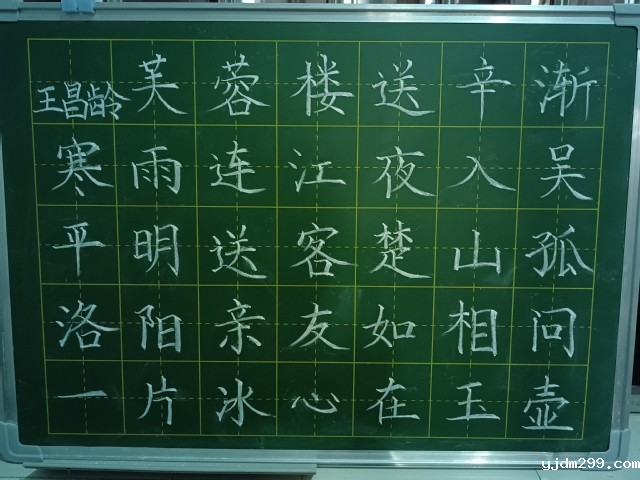 王昌龄 芙蓉楼送辛渐
寒雨连江夜入吴
平明送客楚山孤
洛阳亲友如相问
一片冰心在玉壶
yjdm299.com